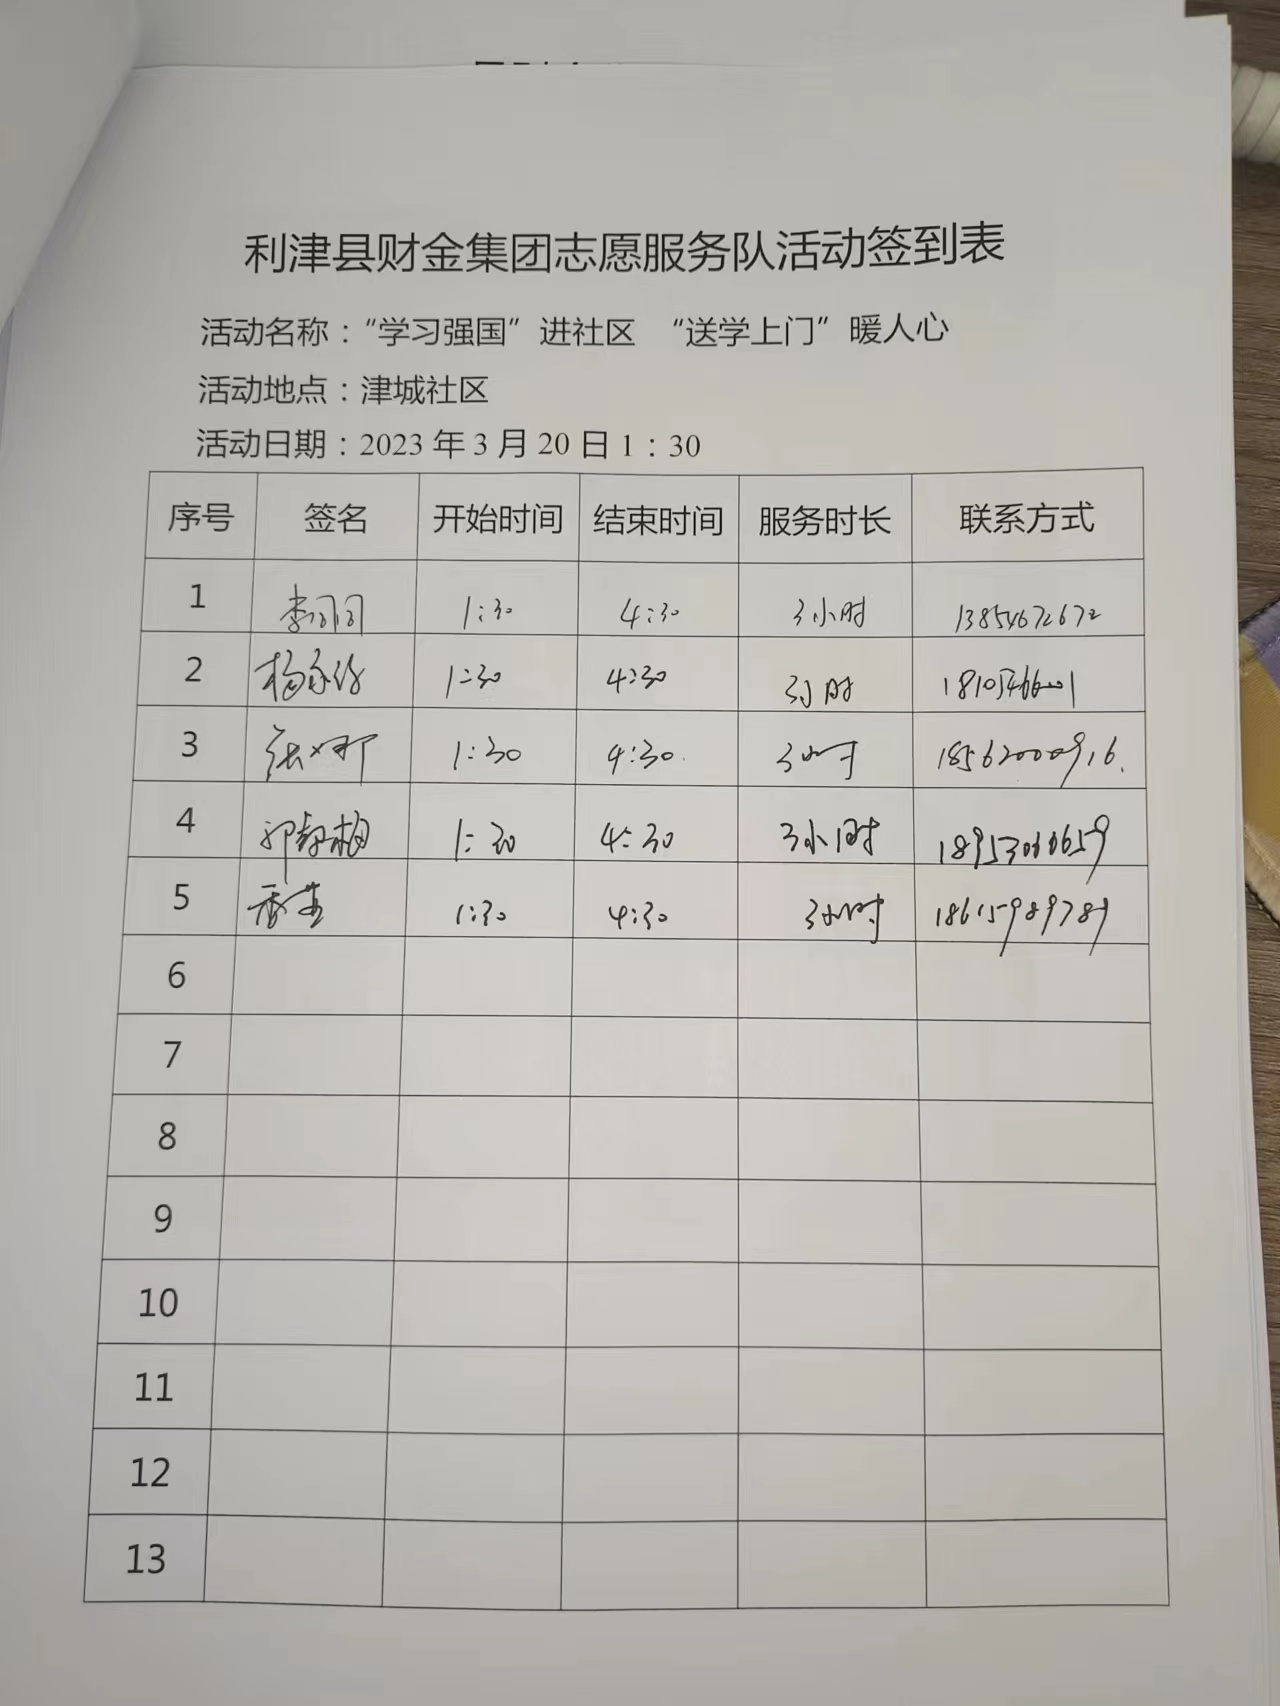 利津县财金集团志愿服务队活动签到表
活动名称：“学习强国”进社区 “送学上门”暖人心
活动地点：津城社区
活动日期：2023 年 3 月 20 日 1：30
序号 签名 开始时间 结束时间 服务时长 联系方式
1 1:30 4:30 3小时 13854672672
2 1:30 4:30 3小时
3 1:30 4:30 3小时 18562000916.
4 1:30 4:30 3小时
5 1:30 4:30 3小时 18615989789
6
7
8
9
10
11
12
13